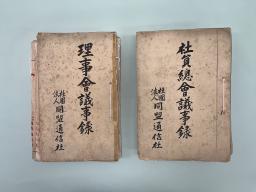 理事會議事錄
社團
法人 同盟通信社
社員總會議事錄
社團
法人 同盟通信社